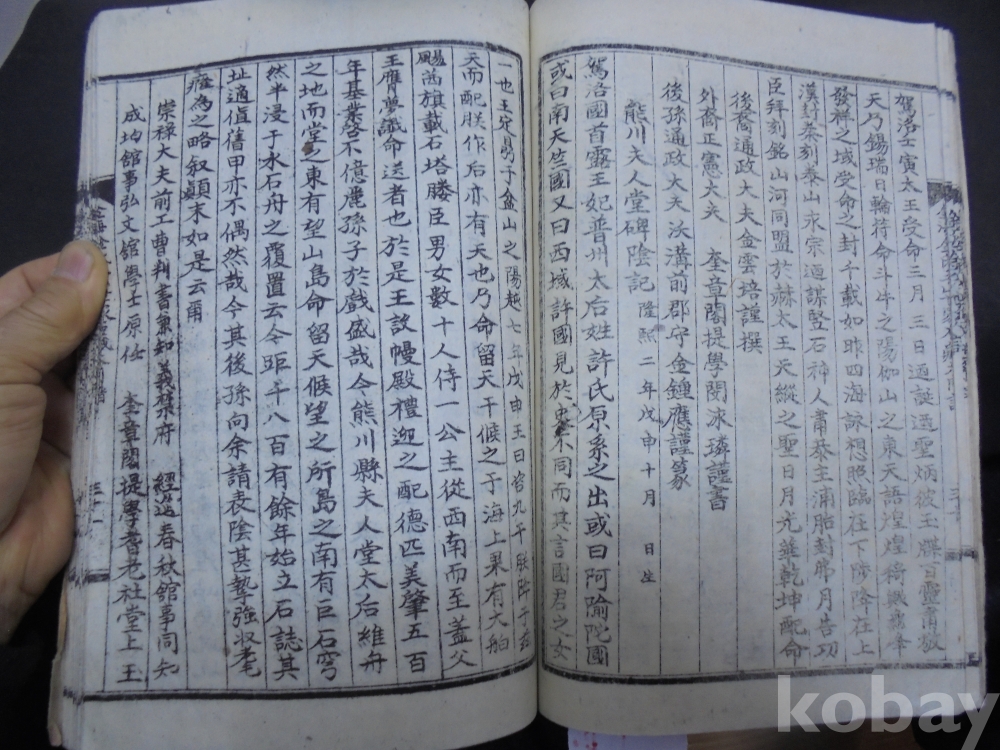 駕洛壬寅太王受命三月三日逎誕迺聖炳彼玉牒百靈
天乃錫瑞日輪待命斗牛之陽伽山之東天語煌煌
發祥之域受命之封千載如昨四海詠想照臨在下陟降在上
漢封泰刻泰山永宗迺謀竪石神人肅恭主浦胎封弗月告功
臣拜刻銘山河同盟於赫太王天縱之聖日月光華乾坤配命
後裔通政大夫金雲培謹撰
外裔正憲大夫 奎章閣提學閔泳璘謹書
後孫通政大夫沃溝前郡守金鍾應謹篆
熊川夫人堂碑陰記 隆熙二年戊申十月 日 生
駕洛國首露王妃普州太后姓許氏原系之出或曰阿踰陀國
或曰南天竺國又曰西域許國見於史不同而其言國君之女
一也王定鼎于盆山之陽越七年戊申王曰咨九干朕降于玆
天而配朕作后亦有天也乃命留天干候之于海上果有大舶
颺茜旗載石塔媵臣男女數十人侍一公主從西南而至蓋父
王膺夢讖命送者也於是王設幔殿禮迎之配德匹美肇五百
年基業啓不億麗孫子於戲盛哉今熊川縣夫人堂太后維舟
之地而堂之東有望山島命留天候望之所島之南有巨石穹
然半浸于水石舟之覆置云今距千八百有餘年始立石誌其
址適值舊甲亦不偶然哉今其後孫向余請表陰甚摯強收耄
癃為之略叙顚末如是云爾
崇祿大夫前工曹判書兼知義禁府 經筵春秋館事同知
成均館事弘文館學士原任 奎章閣提學耆老社堂上 王
三十
三十一
kobay